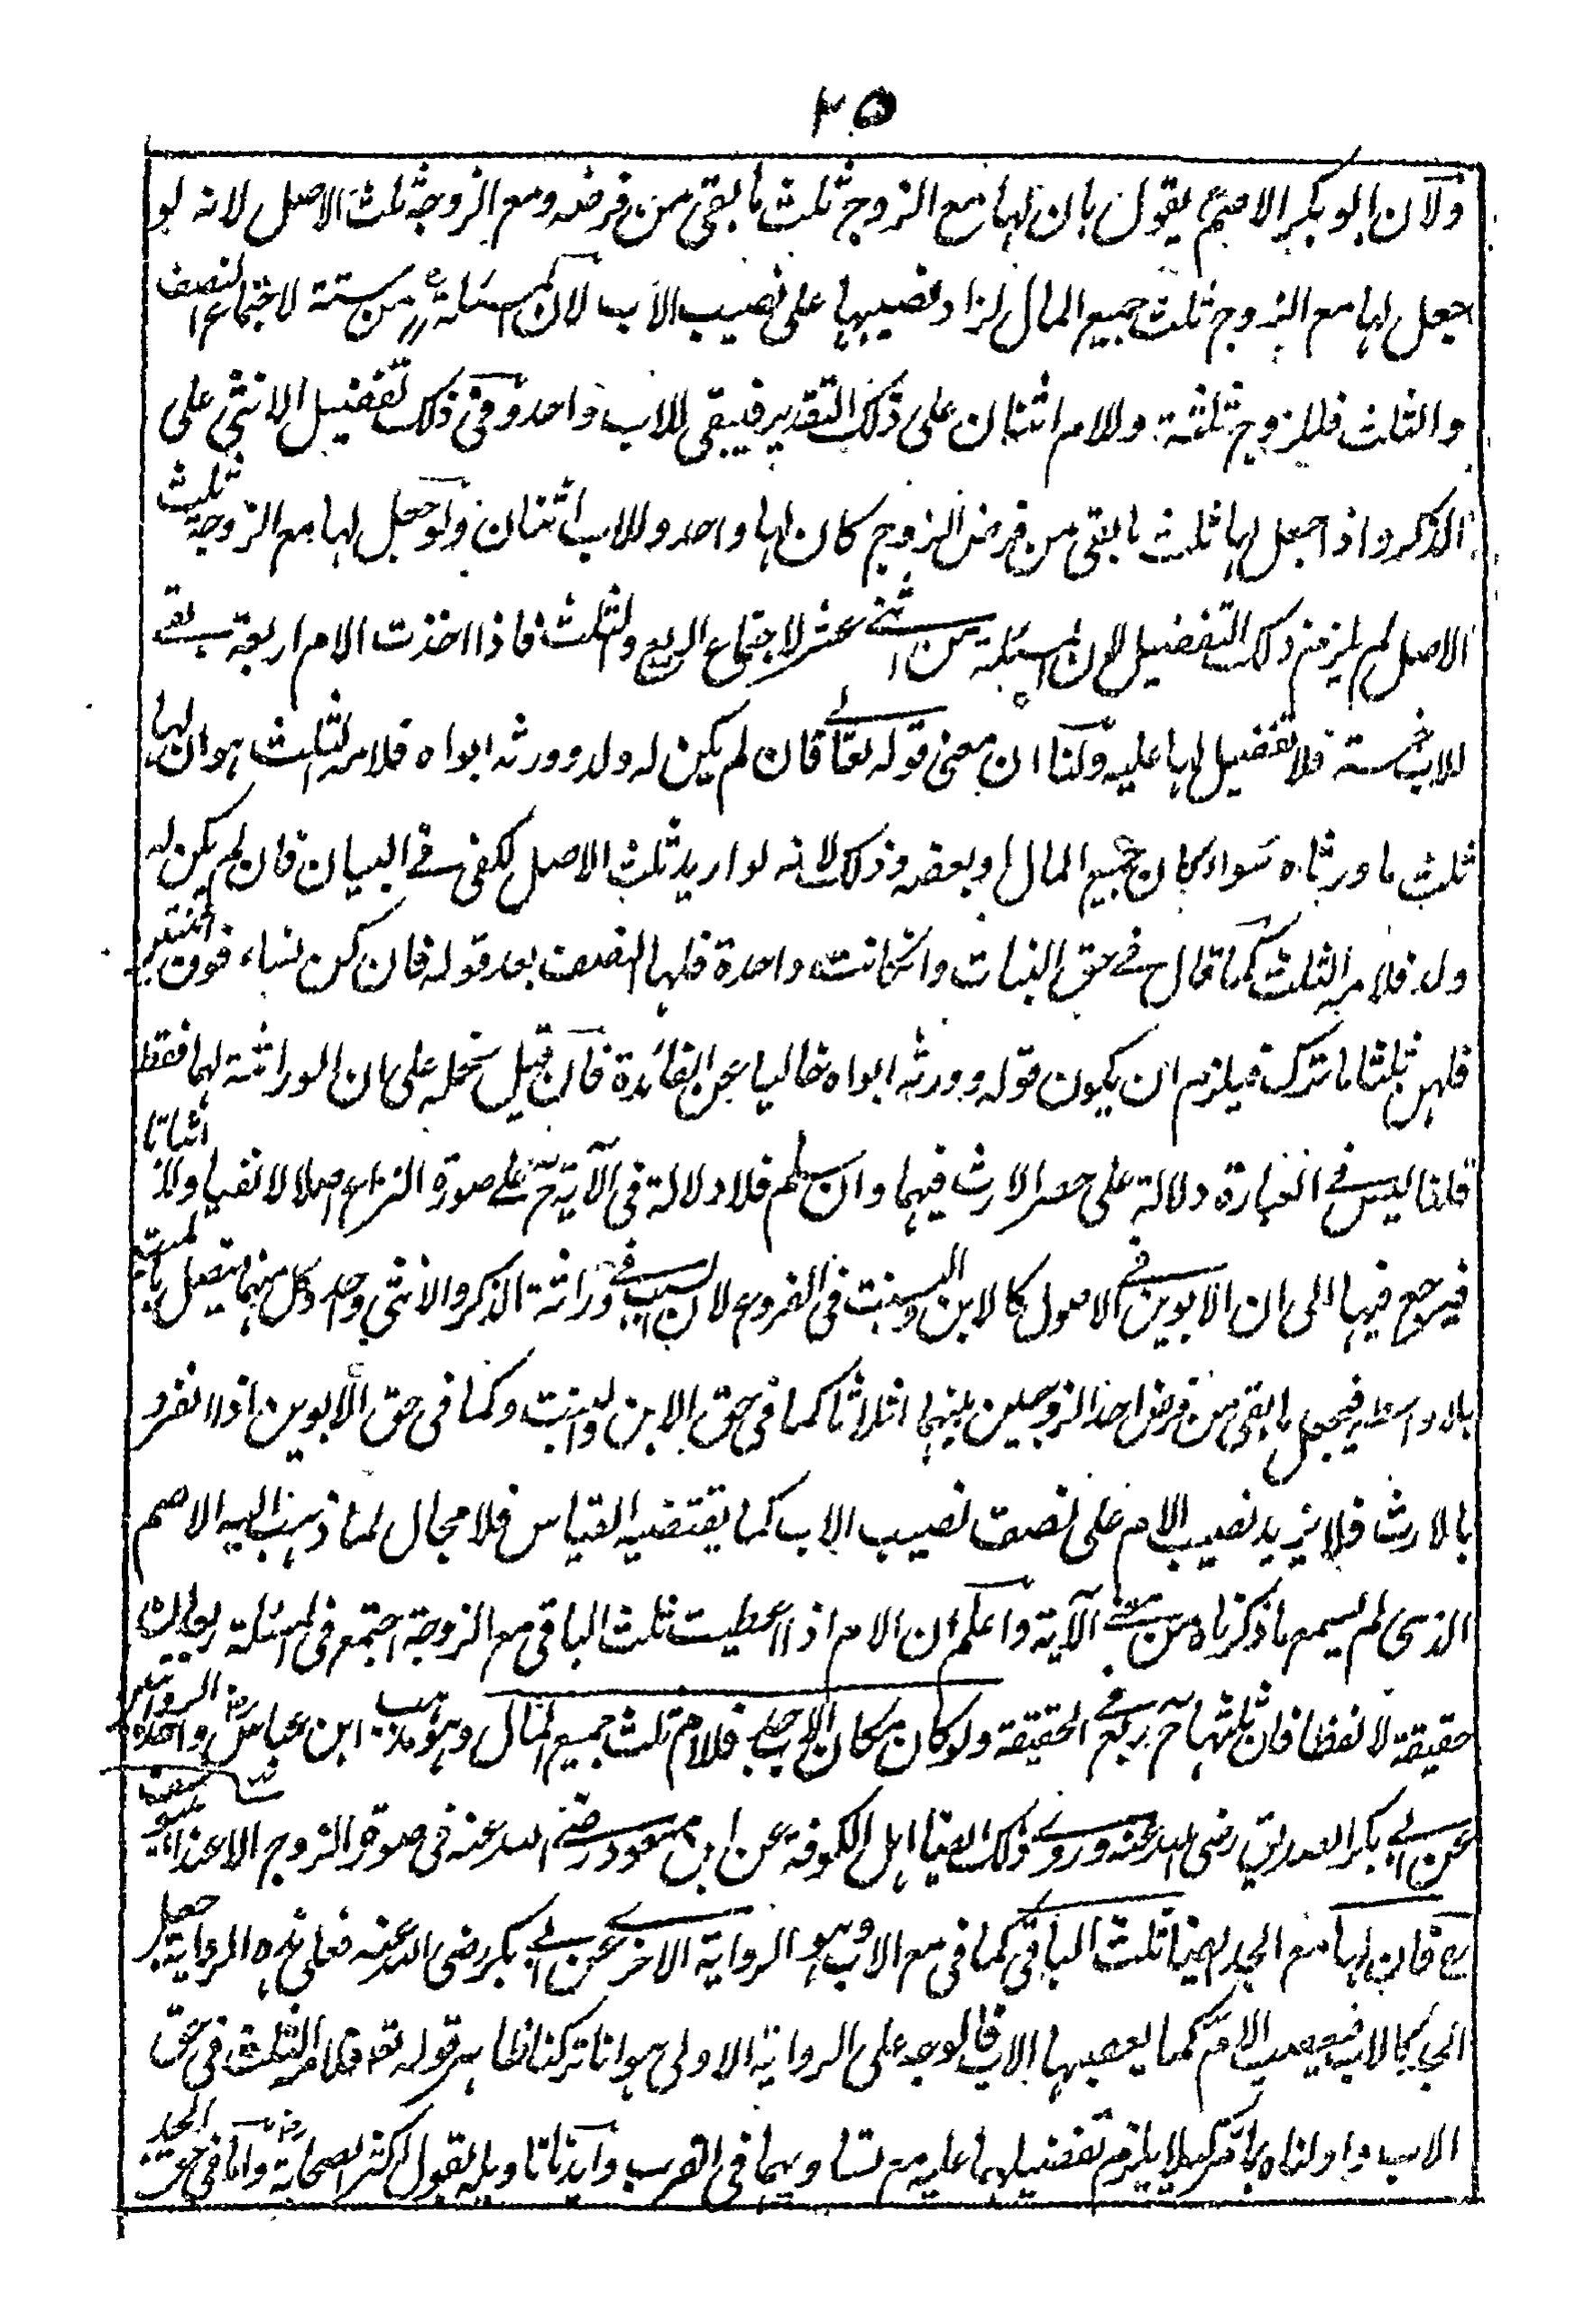 ٢٥
وكان ابو بكر الاصم يقول بان لها مع الزوج ثلث ما بقى من فرضه ومع الزوجة ثلث الاصل لانه لو
جعل لها مع الزوج ثلث جميع المال لزاد نصيبها على نصيب الاب لان المسئلة ح من ستة لاجتماع النصف
والثلث فللزوج ثلثة وللام اثنان على ذلك التقدير فيبقى للاب واحد وفى ذلك تفضيل الانثى على
الذكر واذا جعل لها ثلث ما بقى من فرض الزوج كان لها واحد وللاب اثنان ولو جعل لها مع الزوجة ثلث
الاصل لم يلزم ذلك التفضيل لان المسئلة من اثنے عشر لاجتماع الربع والثلث فاذا اخذت الام اربعة بقے
للاب خمسة فلا تفضيل لها عليه ولنا ان معنى قوله تعالے فان لم يكن له ولد وورثه ابواه فلامه الثلث هو ان لها
ثلث ما ورثاه سواء كان جميع المال او بعضه وذلك لانه لو اريد ثلث الاصل لكفى فے البيان فان لم يكن له
ولد فلامه الثلث كما قال فے حق البنات وان كانت واحدة فلها النصف بعد قوله فان كن نساء فوق اثنتين
فلهن ثلثا ما ترك فيلزم ان يكون قوله وورثه ابواه خاليا عن الفائدة فان قيل نحمله على ان الوراثة لهما فقط
قلنا ليس فے العبارة دلالة على حصر الارث فيهما وان سلم فلا دلالة فى الآية ح علے صورة النزاع اصلا لا نفيا ولا اثباتا
فيرجع فيها الى ان الابوين فے الاصول كالابن والبنت فى الفروع لان السبب فے وراثة الذكر والانثى واحد وكل منهما يتصل بالميت
بلا واسطة فيجعل ما بقى من فرض احد الزوجين بينهما اثلاثا كما فى حق الابن والبنت وكما فى حق الابوين اذا انفرد
بالارث فلا يزيد نصيب الام على نصف نصيب الاب كما يقتضيه القياس فلا مجال لما ذهب اليه الاصم
الذى لم يسمع ما ذكرناه من معنے الآية واعلم ان الام اذا اعطيت ثلث الباقى مع الزوجة اجتمع فى المسئلة ربعان
حقيقة لا لفظا فان ثلثها ح ربع فے الحقيقة ولو كان مكان الاب جد فللام ثلث جميع المال وهو مذهب ابن عباس رض واحدى الروايتين
عن ابے بكر الصديق رضى الله عنه وروے ذلك ايضا اهل الكوفة عن ابن مسعود رضے الله عنه فى صورة الزوج الا عند ابى يوسف
رح فان لها مع الجد ايضا ثلث الباقى كما فى مع الاب وهو الرواية الاخرے عن ابے بكر رضى الله عنه فعلى هذه الرواية جعل
الجد كالاب فيعصب الام كما يعصبها الاب والوجه على الرواية الاولى هو انا تركنا ظاهر قوله تعالى فلامه الثلث فى حق
الاب واولناه بما مر كيلا يلزم تفضيلها عليه مع تساويهما فى القرب وايدنا تاويله بقول اكثر الصحابة رض واما فى حق الجد